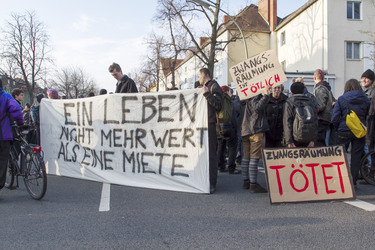 EIN LEBEN
NICHT MEHR WERT
ALS EINE MIETE
ZWANGS-
RÄUMUNG
IST
TÖLICH
ZWANGSRÄUMUNG
TÖTET